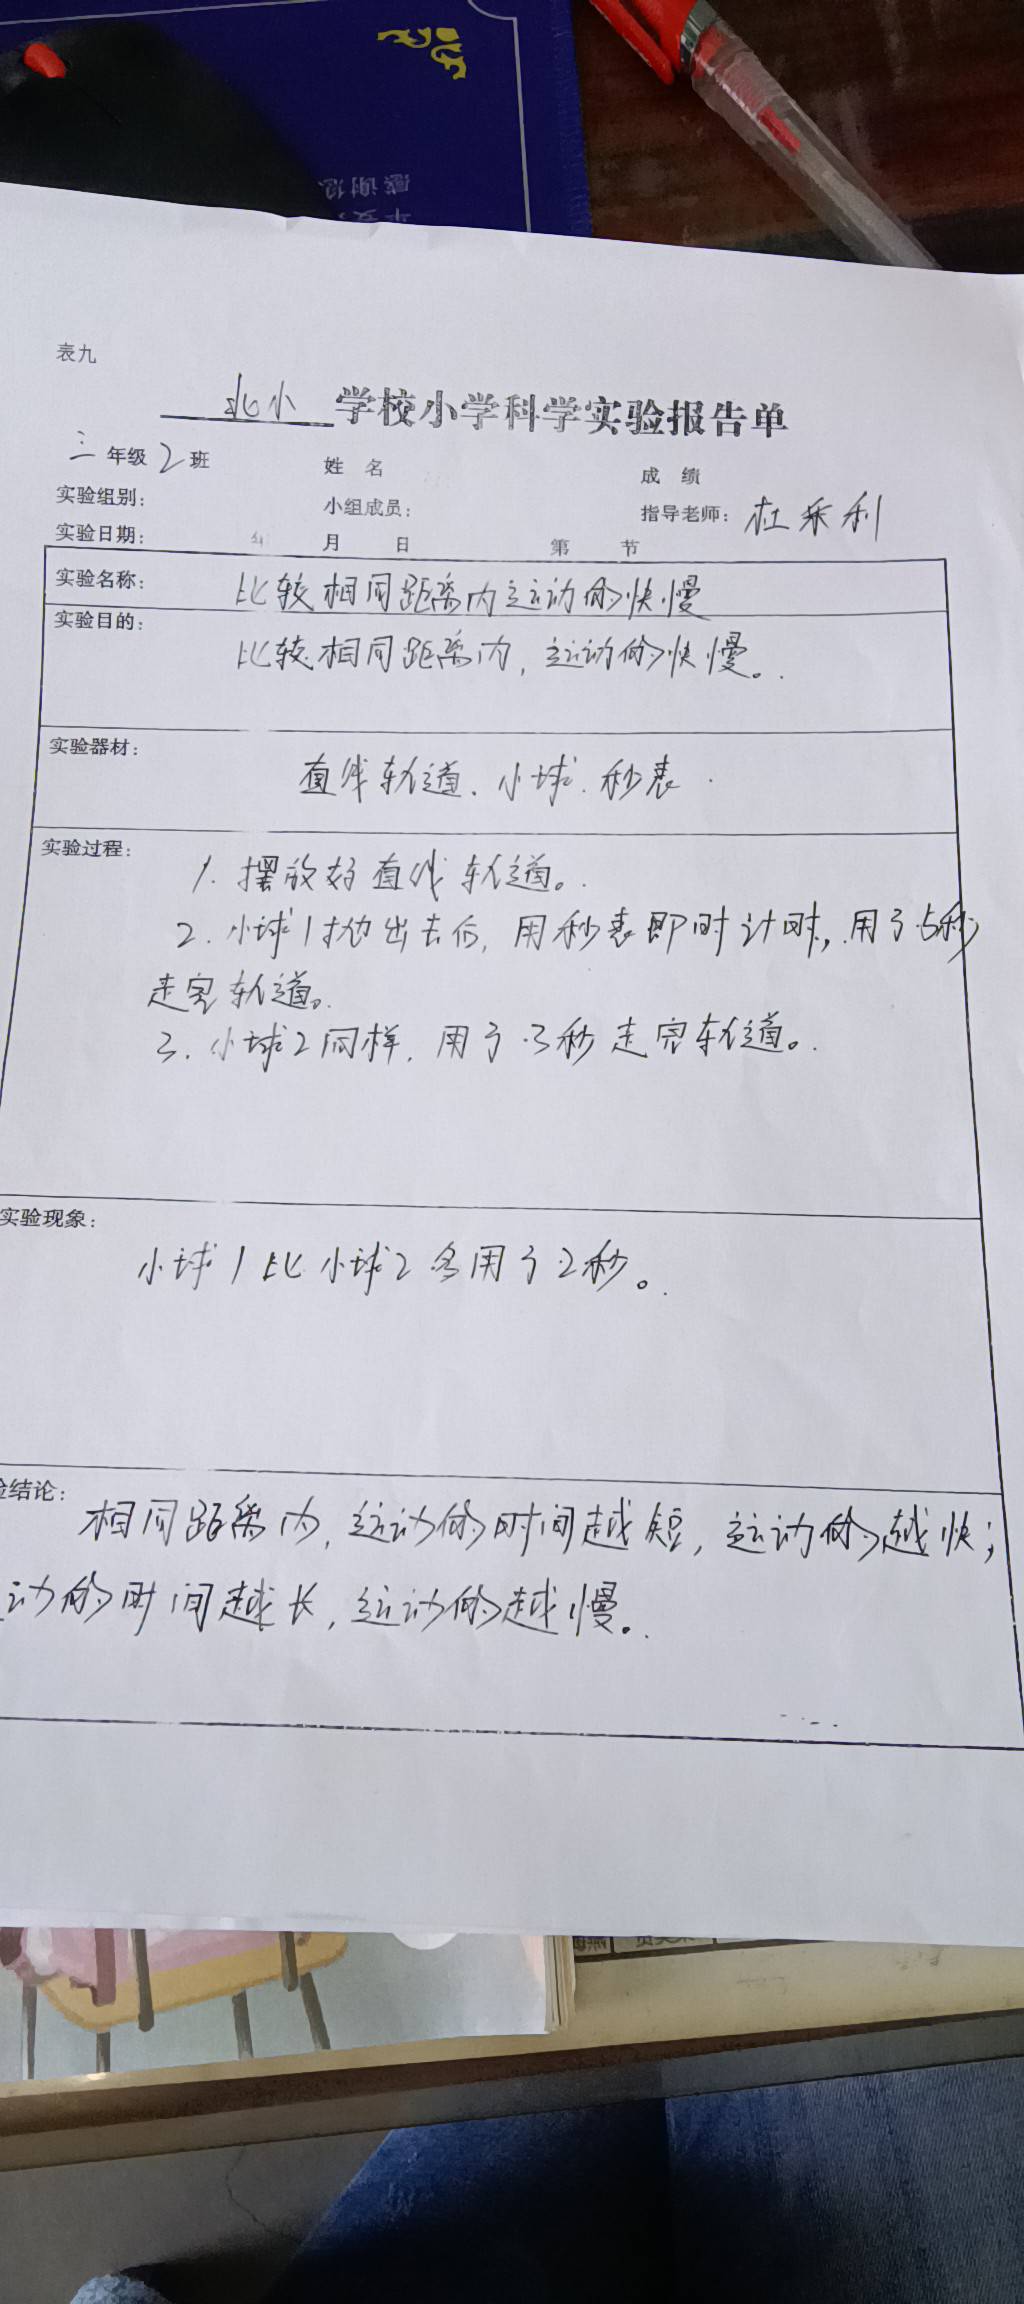 感谢您
表九
北小 学校小学科学实验报告单
三年级2班 姓 名 成 绩
实验组别: 小组成员: 指导老师: 杜采利
实验日期: 年 月 日 第 节
实验名称: 比较相同距离内运动的快慢
实验目的: 比较相同距离内,运动的快慢。
实验器材: 直线轨道、小球、秒表
实验过程: 1. 摆放好直线轨道。
2. 小球1抛出去后, 用秒表即时计时, 用了5秒
走完轨道。
3. 小球2同样, 用了3秒走完轨道。
实验现象:
小球1比小球2多用了2秒。
验结论: 相同距离内, 运动的时间越短, 运动的越快;
动的时间越长, 运动的越慢。